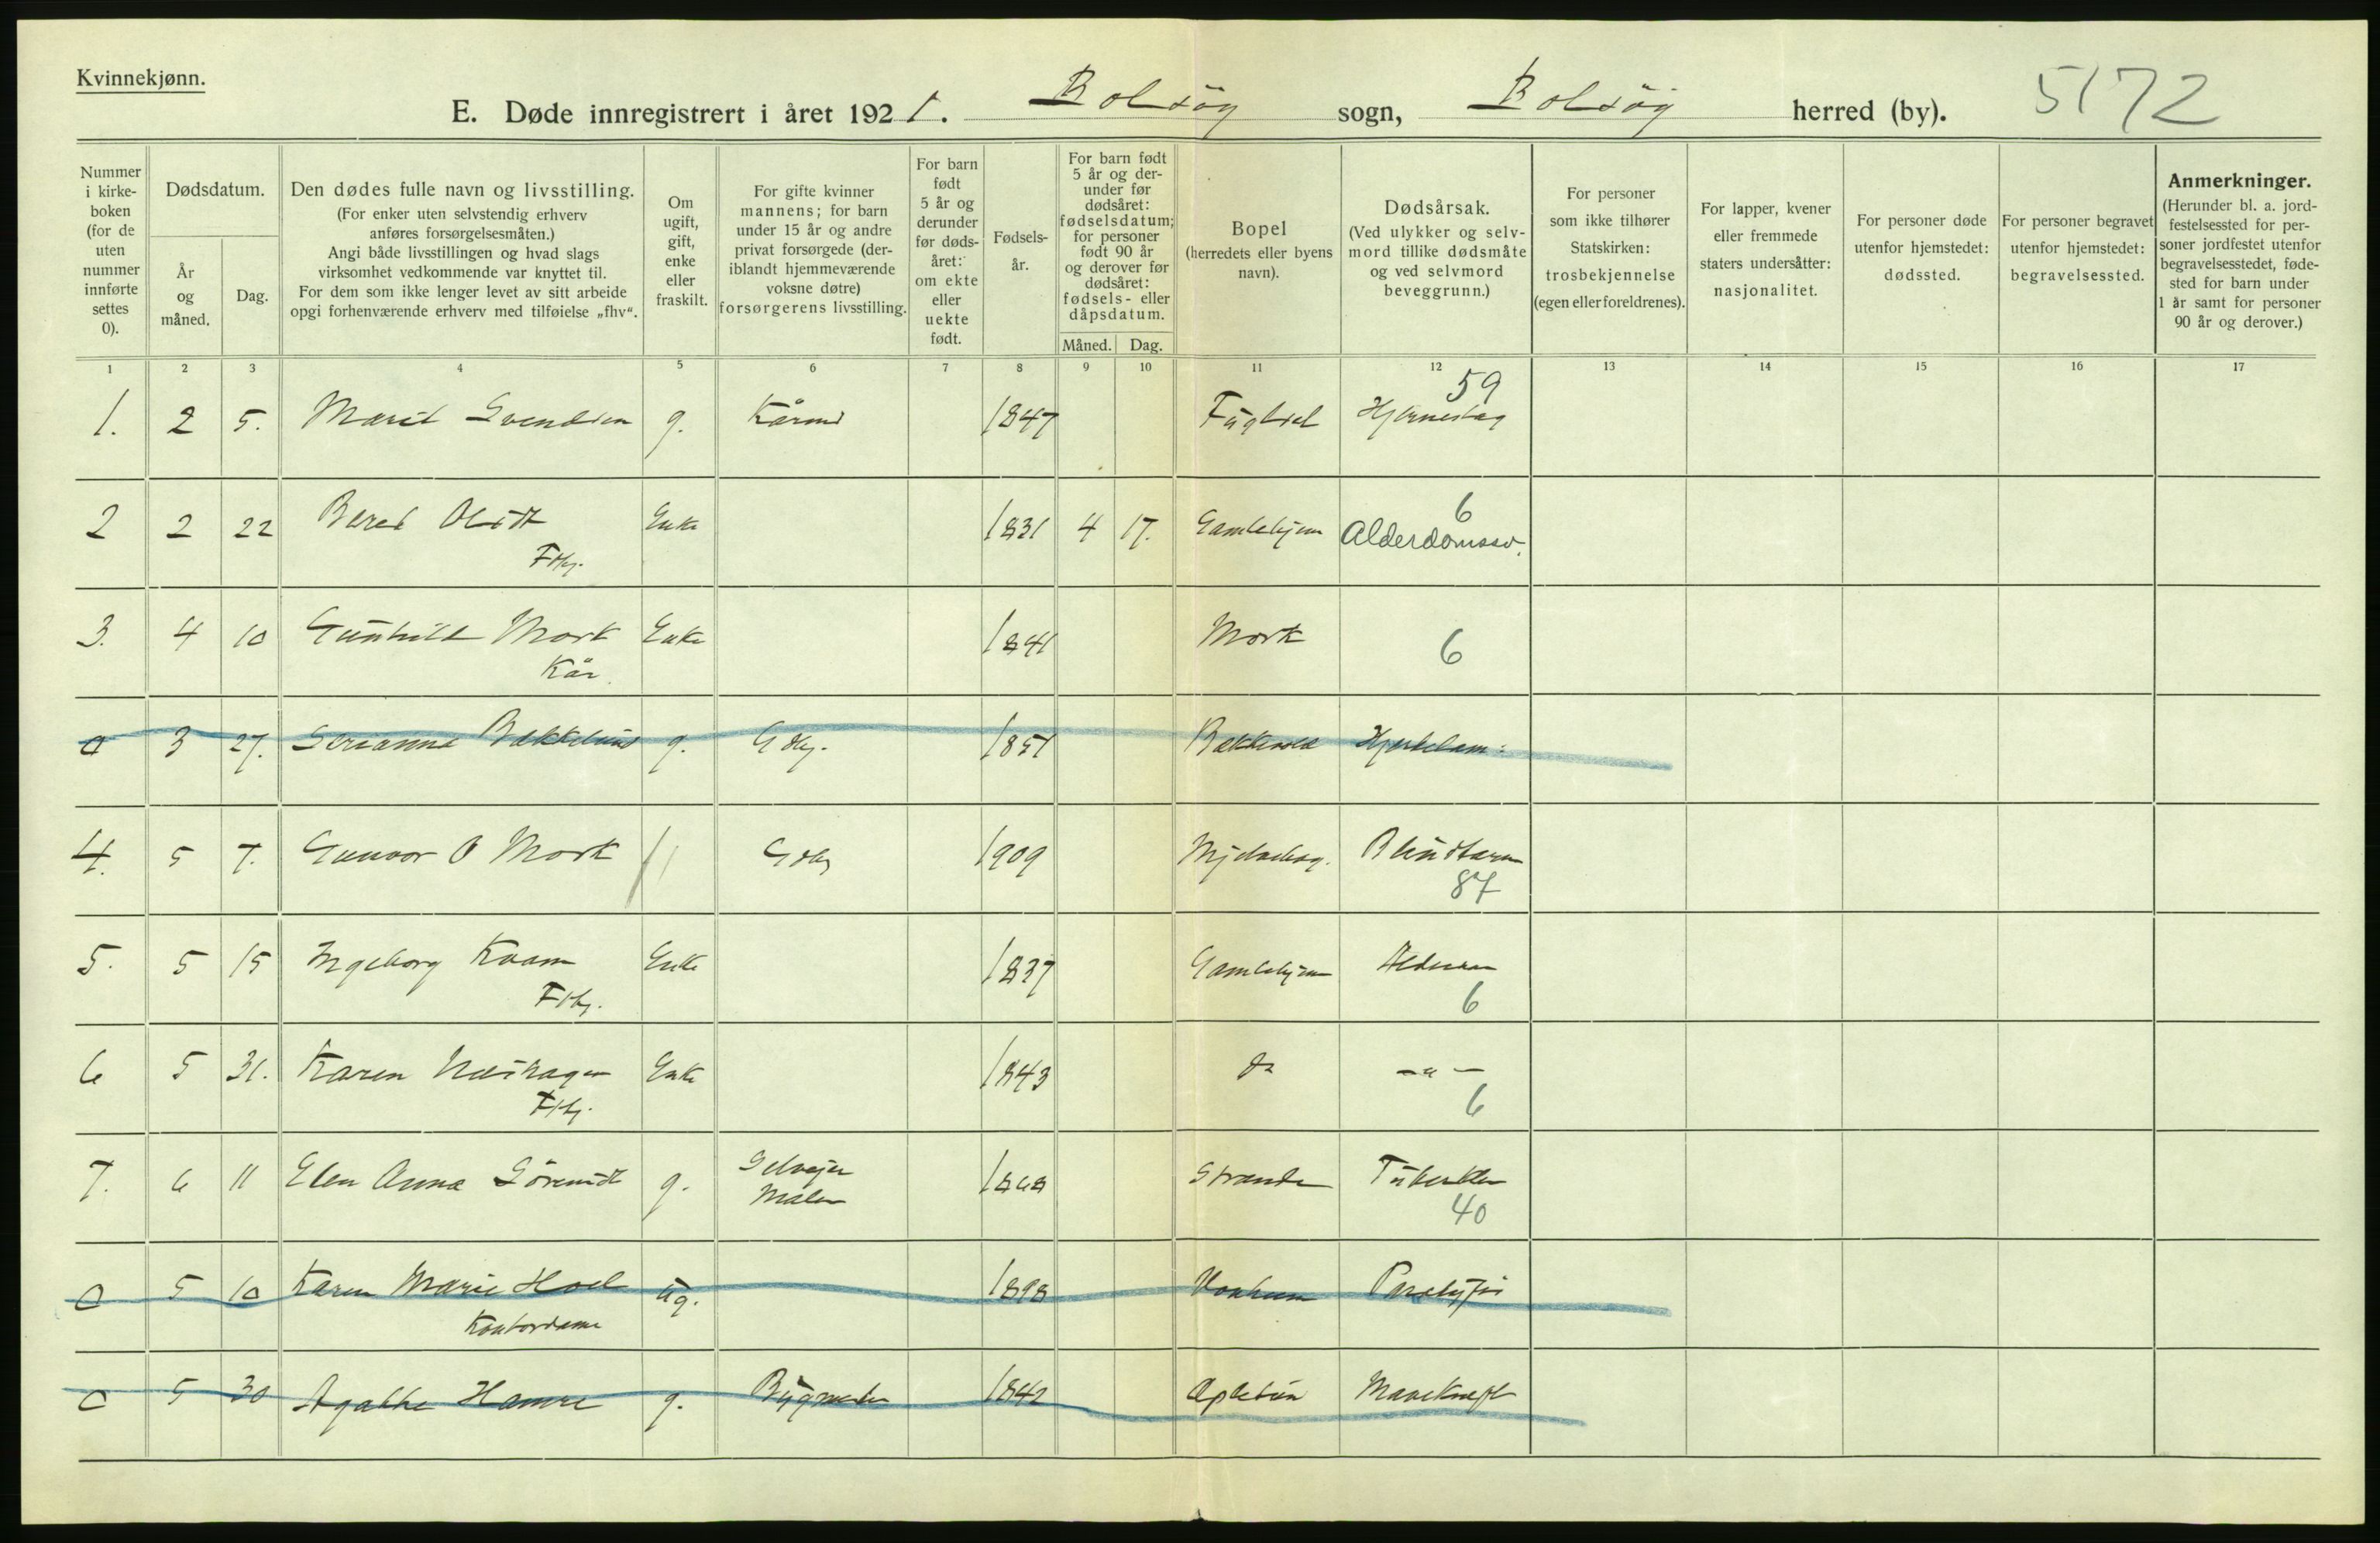 Kvinnekjønn.
E. Døde innregistrert i året 1921. Bolsøy sogn, Bolsøy herred (by). 5172
Nummer i kirke- boken (for de uten nummer innførte settes 0).
Dødsdatum.
År og måned.
Dag.
Den dødes fulle navn og livsstilling.
(For enker uten selvstendig erhverv
anføres forsørgelsesmåten.)
Angi både livsstillingen og hvad slags
virksomhet vedkommende var knyttet til.
For dem som ikke lenger levet av sitt arbeide
opgi forhenværende erhverv med tilføielse „fhv“.
Om ugift, gift, enke eller fraskilt.
For gifte kvinner
mannens; for barn
under 15 år og andre
privat forsørgede (der-
iblandt hjemmeværende
voksne døtre)
forsørgerens livsstilling.
For barn født 5 år og derunder før døds- året: om ekte eller uekte født.
Fødsels- år.
For barn født
5 år og der-
under før
dødsåret:
fødselsdatum;
for personer
født 90 år
og derover før
dødsåret:
fødsels- eller
dåpsdatum.
Måned. Dag.
Bopel
(herredets eller byens
navn).
Dødsårsak.
(Ved ulykker og selv-
mord tillike dødsmåte
og ved selvmord
beveggrunn.)
For personer
som ikke tilhører
Statskirken:
trosbekjennelse
(egen eller foreldrenes).
For lapper, kvener
eller fremmede
staters undersåtter:
nasjonalitet.
For personer døde
utenfor hjemstedet:
dødssted.
For personer begravet
utenfor hjemstedet:
begravelsessted.
Anmerkninger.
(Herunder bl. a. jord-
festelsessted for per-
soner jordfestet utenfor
begravelsesstedet, føde-
sted for barn under
1 år samt for personer
90 år og derover.)
1 2 3 4 5 6 7 8 9 10 11 12 13 14 15 16 17
59
1. 2 5. Marit Svendsen g. Kårm 1847 Fuglset Hjerneslag
6
2 2 22 Beret Enke 1831 4 17. Gamlehjem Alderdomssv.
3. 4 10 Gunhild Mork Enke 1841 Mork 6
Kår
0 3 27. Serianna Bakkelund g. Gbr. 1851 Hjertelam:
4. 5 7. Gunvor O Mork Gbr 1909 Blindtarm
87
5. 5 15 Ingeborg Kvam Enke 1837 Gamlehjem
6
6 5 31. Karen Enke 1843 do -"-
6
7. 6 11 Elen Anna g. Selvejer 1868 Strande Tuberkler
Maler 40
0 5 10 Karen Marie Hoel ug. 1898
Kontordame
0 5 30 Agathe Hamre g. Bygmester 1842 Mavekreft